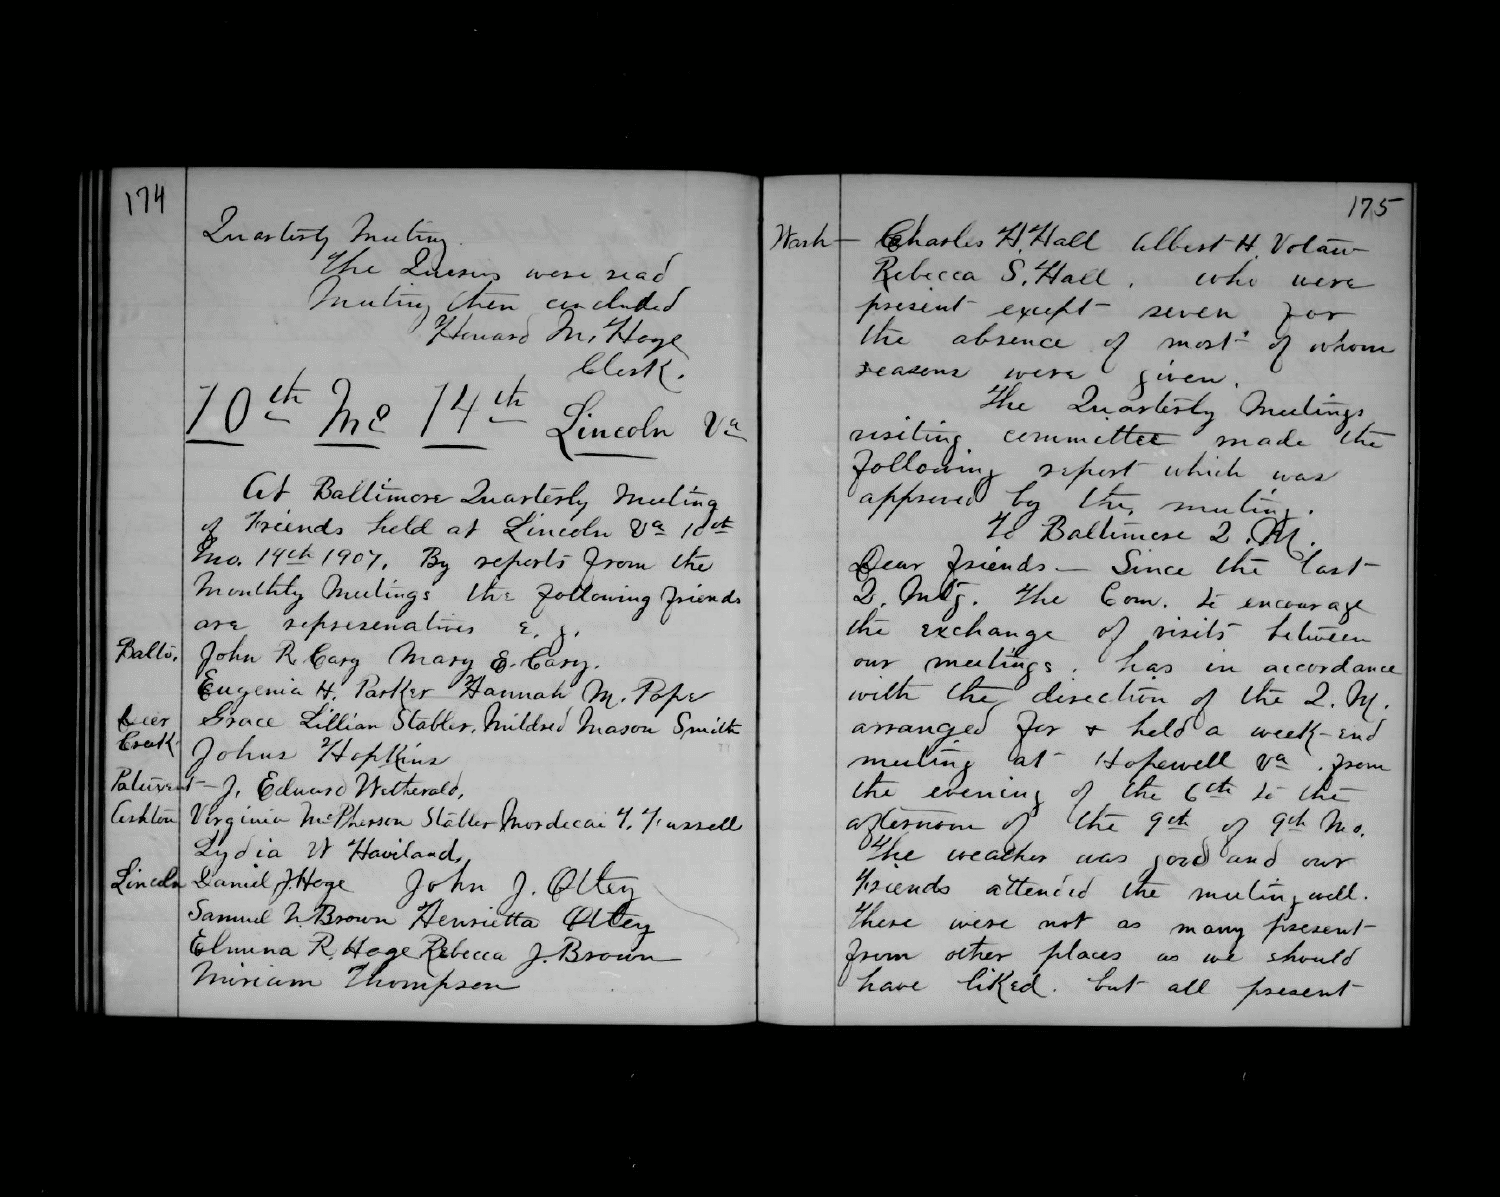 174
Quarterly Meeting.
The Querys were read
Meeting then concluded
Howard M. Hoge
Clerk.
10th Mo 14th Lincoln Va
At Baltimore Quarterly Meeting
of Friends held at Lincoln Va 10th
Mo. 14th 1907. By reports from the
Monthly Meetings the following friends
are represenatives e. g.
Balto. John R. Cary Mary E. Cary.
Eugenia H. Parker Hannah M. Pope
Deer Grace Lillian Stabler, Mildred Mason Smith
Creek Johns Hopkins
Patuxent - J. Edward Wetherald,
Ashton Virginia McPherson Stabler Mordecai T. Fussell
Lydia W Haviland,
Lincoln Daniel J. Hoge John J. Otley
Samuel N. Brown Henrietta Otley
Elmina R. Hoge Rebecca J. Brown
Miriam Thompson
175
Wash - Charles H. Hall Albert H. Votaw
Rebecca S. Hall. who were
present except seven for
the absence of most of whom
reasons were given.
The Quarterly Meetings
visiting committee made the
following report which was
approved by the meeting.
To Baltimore Q. M.
Dear friends - Since the last
Q. Mtg. the Com. to encourage
the exchange of visits between
our meetings. has in accordance
with the direction of the Q. M.
arranged for & held a week-end
meeting at Hopewell Va. from
the evening of the 6th to the
afternoon of the 9th of 9th Mo.
The weather was good and our
Friends attended the meeting well.
There were not as many present
from other places as we should
have liked. but all present